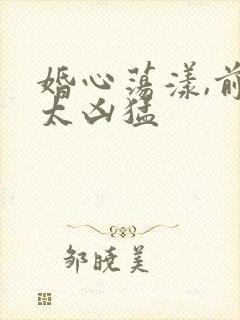 婚心荡漾,前
太凶猛
邹晓美